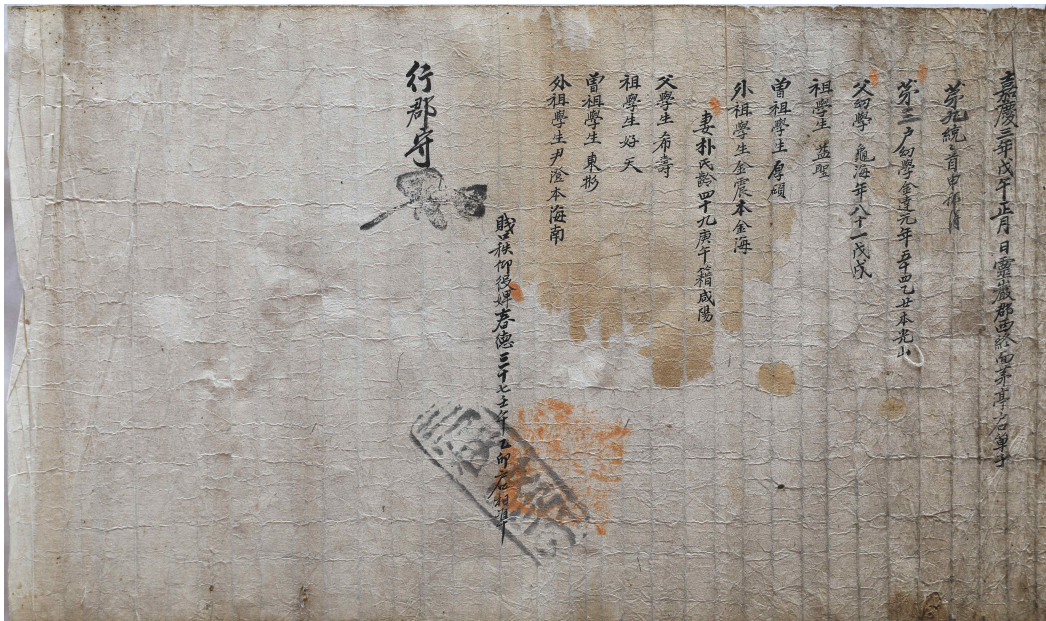 嘉慶三年戊午正月 日靈巖郡西終面茅亭戶單子
第九統首申
第三戶幼學金達元年五十四乙丑本光山
父幼學龜海年八十一戊戌
祖學生益聖
曾祖學生厚碩
外祖學生金震本金海
妻朴氏齡四十九庚午籍咸陽
父學生希壽
祖學生好天
曾祖學生東彬
外祖學生尹澄本海南
賤口秩仰役婢春德三十七壬午乙卯戶相準
行郡守